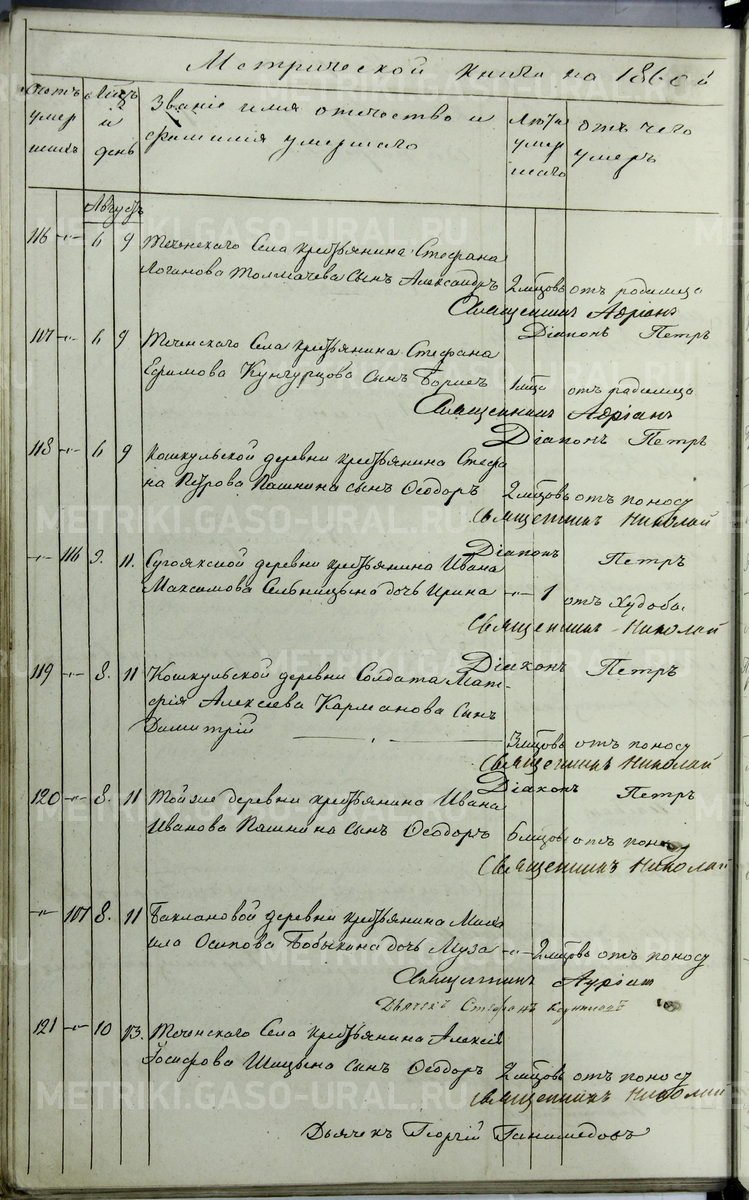 Метрической книги на 186
Счетъ умер шихъ
Мсцъ и день
Званіе имя отчество и фамилія умершаго
Лѣта умер шаго
отъ чего умеръ
Августъ
116 6 9 Теченскаго Села крестьянина Стефана
Логанова Толмачева Сынъ Александръ 2 мсцовъ отъ родимца
Священникъ Адріанъ
Діаконъ Петръ
117 6 9 Теченскаго Села крестьянина Стефана
Ефимова Кунгурцова Сынъ Борисъ 1 мсца отъ родимца
Священникъ Адріанъ
Діаконъ Петръ
118 6 9 Кошкульской деревни крестьянина Стефа
на Петрова Пашнина сынъ Ѳеодоръ 2 мсцовъ отъ поносу
Священникъ Николай
Діаконъ Петръ
116 9. 11. Сугоякской деревни крестьянина Ивана
Максимова дочь Ирина 1 отъ худобы.
Священникъ Николай
Діаконъ Петръ
119 8. 11 Кошкульской деревни Солдата Мат-
фія Алексіева Карманова Сынъ
Димитрій 3 мсцовъ отъ поносу
Священникъ Николай
Діаконъ Петръ
120 8. 11 Тойже деревни крестьянина Ивана
Иванова Пашнина сынъ Ѳеодоръ 6 мсцовъ отъ поносу
Священникъ Николай
107 8. 11 Баклановой деревни крестьянина Миха
ила Осипова Бобыкина дочь Муза 2 мсцовъ отъ поносу
Священникъ
Дьячекъ Стефанъ
121 10 13. Теченскаго Села крестьянина Алексія
Іосифова Шицына сынъ Ѳеодоръ 2 мсцовъ отъ поносу
Священникъ Николай
Дьячекъ Георгій Ганимедовъ
METRIKI.GASO-URAL.RU